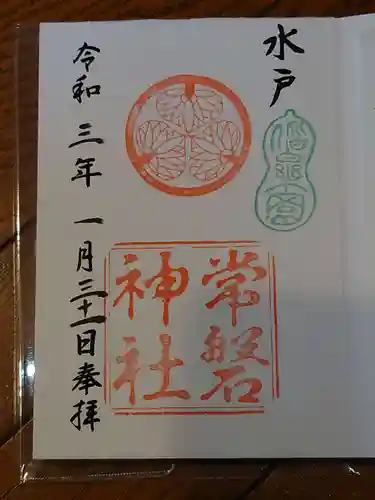 水戸
常磐
神社
令和三年一月三十一日奉拝